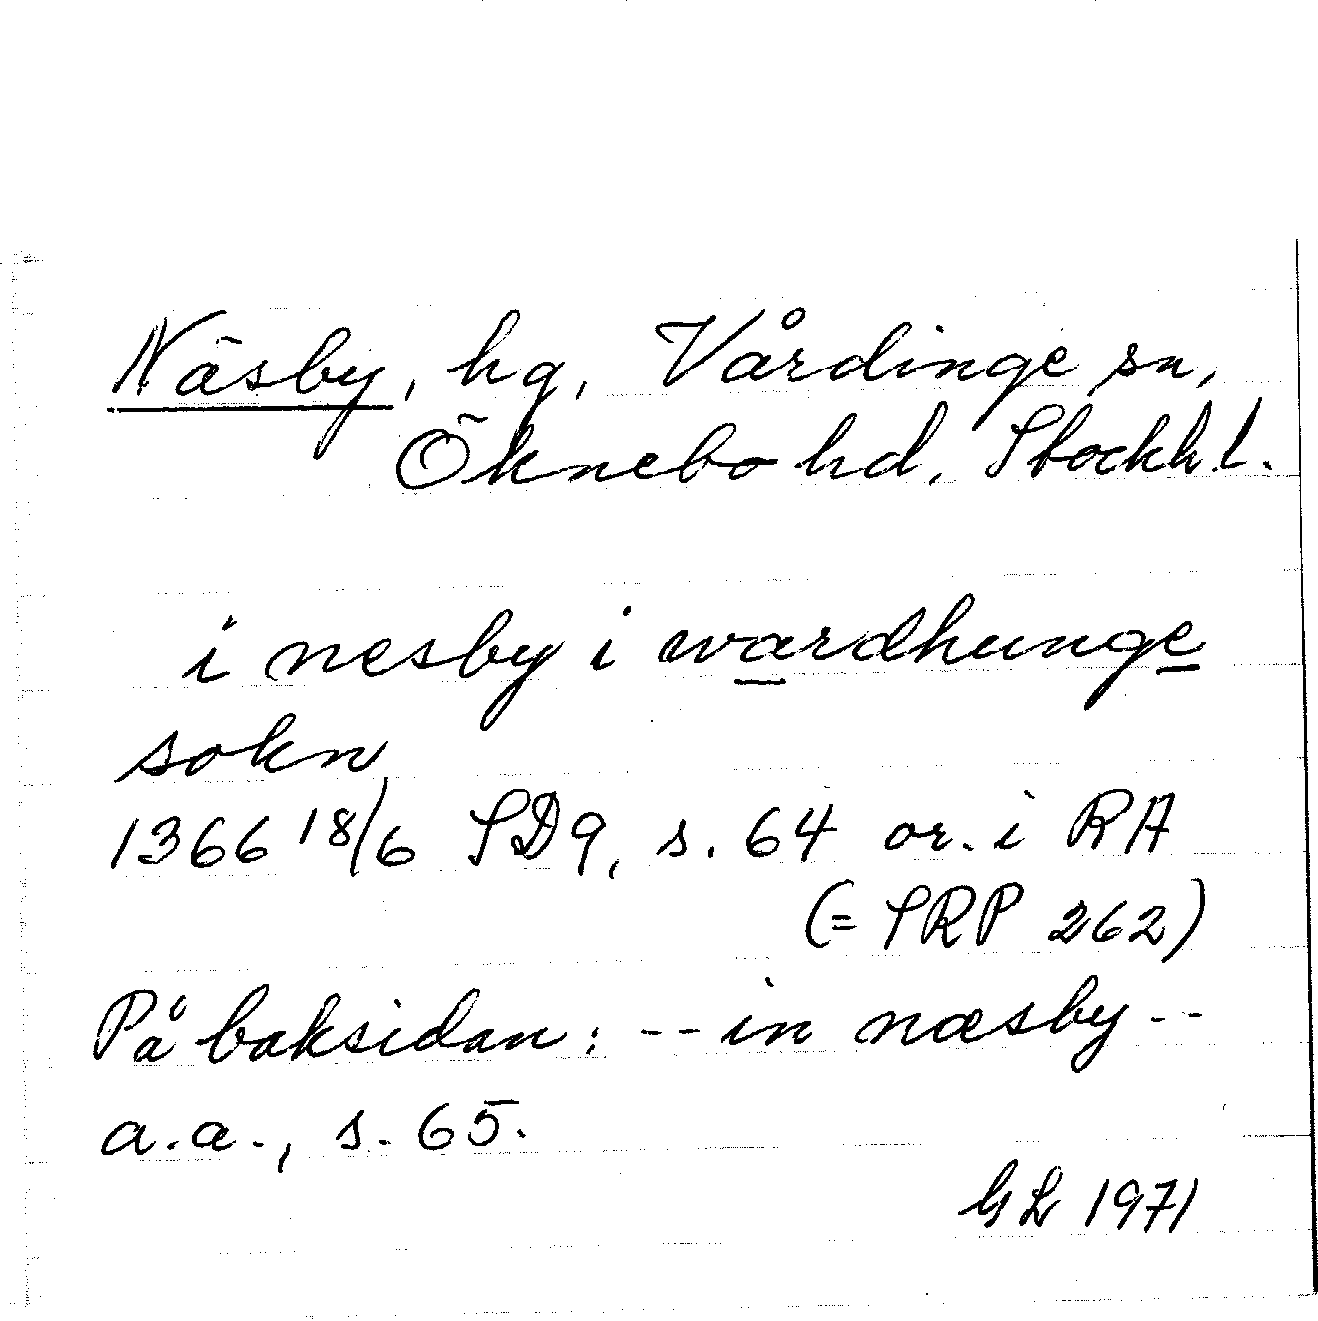 Näsby, hg, Vårdinge sn,
Öknebo hd, Stockh. l.
i nesby i wardhunge
sokn
1366 18/6 SD9, s. 64 or. i RA
(= SRP 262)
På baksidan: -- in næsby --
a.a., s. 65.
GL 1971